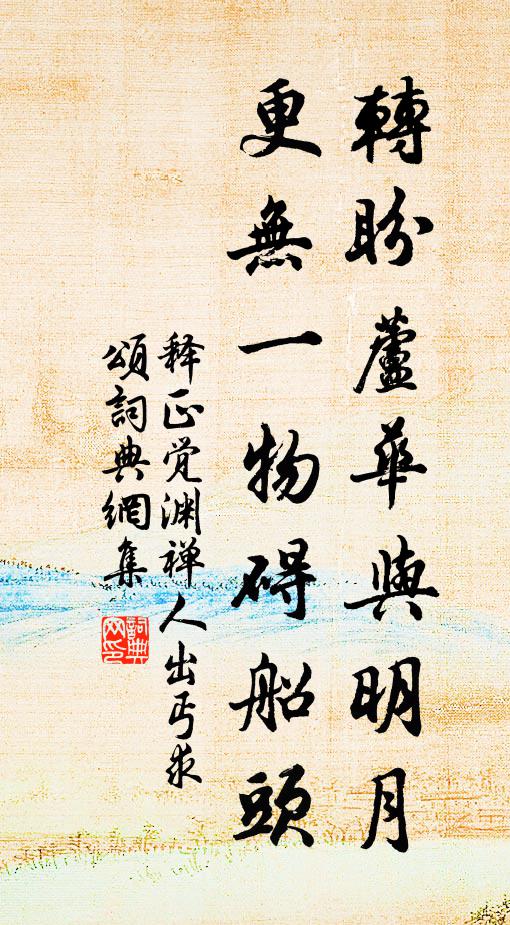 轉盼蘆華與明月
更無一物碍船頭
释正觉渊禅人出丐求
頌詞典網集
詞典网印